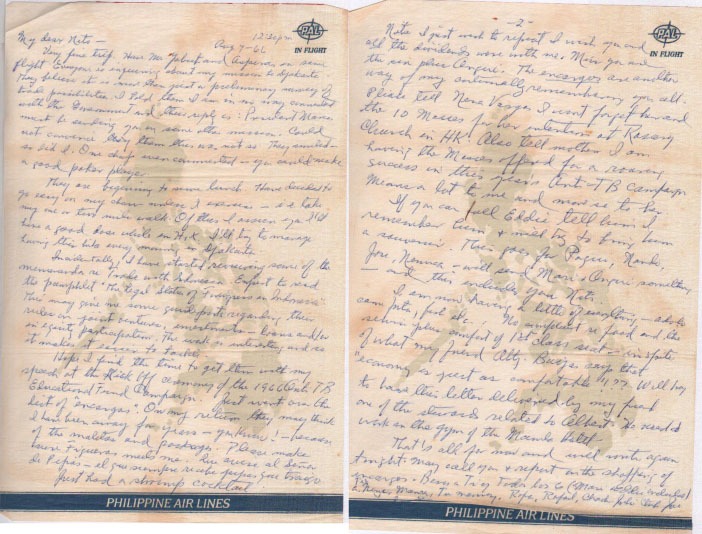 PAL
IN FLIGHT
12:30 pm
Aug 7-66
My dear Nits -
Very fine trip. Have Mr. and on same
flight. Everyone is inquiring about my mission to Djakarta.
They believe it is more than just a preliminary survey of
trade possibilities. I told them I am in no way connected
with the Government and their reply is: President Marcos
must be sending you on some other mission. Could
not convince them there was not so. They smiled -
so did I. One chap even commented - you could make
a good poker player.
They are beginning to serve lunch. Have decided to
go easy on my chow unless I exercise - i.e. take
my one or two mile walk. Of this I assure you I'll
have a good dose while in H.K. I'll try to manage
having this bit every morning in Djakarta.
Incidentally, I have started reviewing some of the
memoranda re Trade with Indonesia. Expect to read
the pamphlet "The Legal State of Foreigners in Indonesia".
This may give me some good points regarding their
rules on joint ventures, investments - loans and/or
in equity participation. The work is interesting and so
it makes it easier to tackle.
Hope I find the time to get thru with my
speech at the Kick Off ceremony of the 1966 Anti TB
Educational Fund Campaign. Just went over the
list of "encargos". On my return they may think
I have been away for years - you know! - because
of the maletas and packages. Please make
sure Figueras meets me. Que avise al Señor
de Pipas - el que siempre recibe
Just had a shrimp cocktail
PHILIPPINE AIR LINES
-2-
PAL
IN FLIGHT
Nits, I just wish to repeat I wish you and
all the dividends were with me. Main you and
the six plus Angie. The encargos are another
way of my continually remembering you all.
Please tell Nena Vargas I wont forget her and
the 10 Masses for her intention at Rosary
Church in HK. Also tell mother I am
having the Masses offered for a roaring
success in this years Anti-TB Campaign
Means a lot to me and more so to her
If you can call Eddie tell him I
remember him & will try to bring him
a souvenir. Then goes for Paquie,
Jose, - will send Mari & Angie something
- and this includes you Nits.
I am now having a little of everything -
fish etc. No complaint re food and the
service plus comfort of 1st class seat - in spite
of what my friend Atty. says that
"economy is just as comfortable"!?? Will try
to have this letter delivered by my friend
one of the stewards related to Albert. He used to
work in the gym of the Manila Hotel.
That's all for now and will write again
tonight. May call you & report on the shopping of
encargos. Besos a Ti y Todos los 6 (Mari, Eddie included)
Rafa, Rafael,
PHILIPPINE AIR LINES